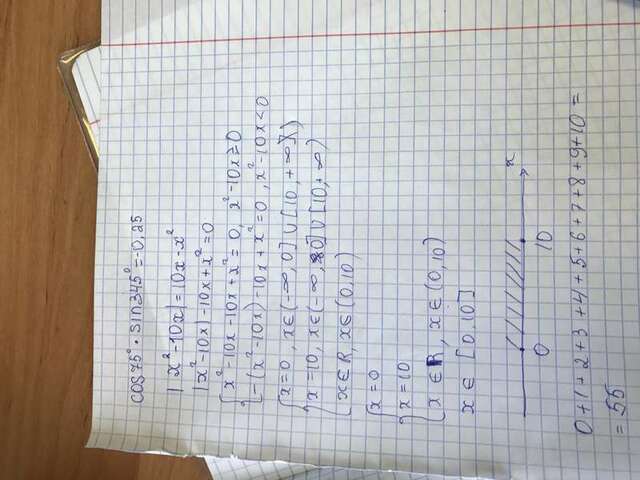 cos75°·sin345°=-0,25
|x²-10x|=10x-x²
|x²-10x|-10x+x²=0
{x²-10x-10x+x²=0, x²-10x≥0
{-(x²-10x)-10x+x²=0, x²-10x<0
{x=0, x∈(-∞,0]∪[10,+∞)
{x=10, x∈(-∞,0]∪[10,+∞)
{x∈R, x∈(0,10)
{x=0
{x=10
{x∈R, x∈(0,10)
x∈[0,10]
x
0 10
0+1+2+3+4+5+6+7+8+9+10=
=55